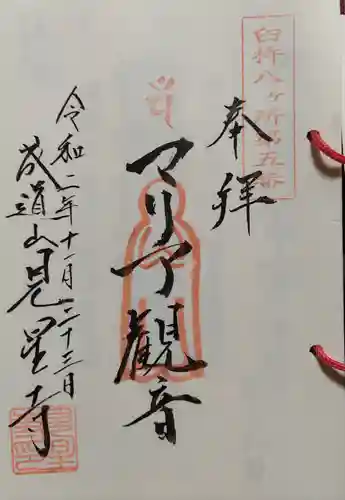 臼杵八ヶ所第五番
奉拝
マリア観音
令和二年十一月二十三日
成道山見星寺